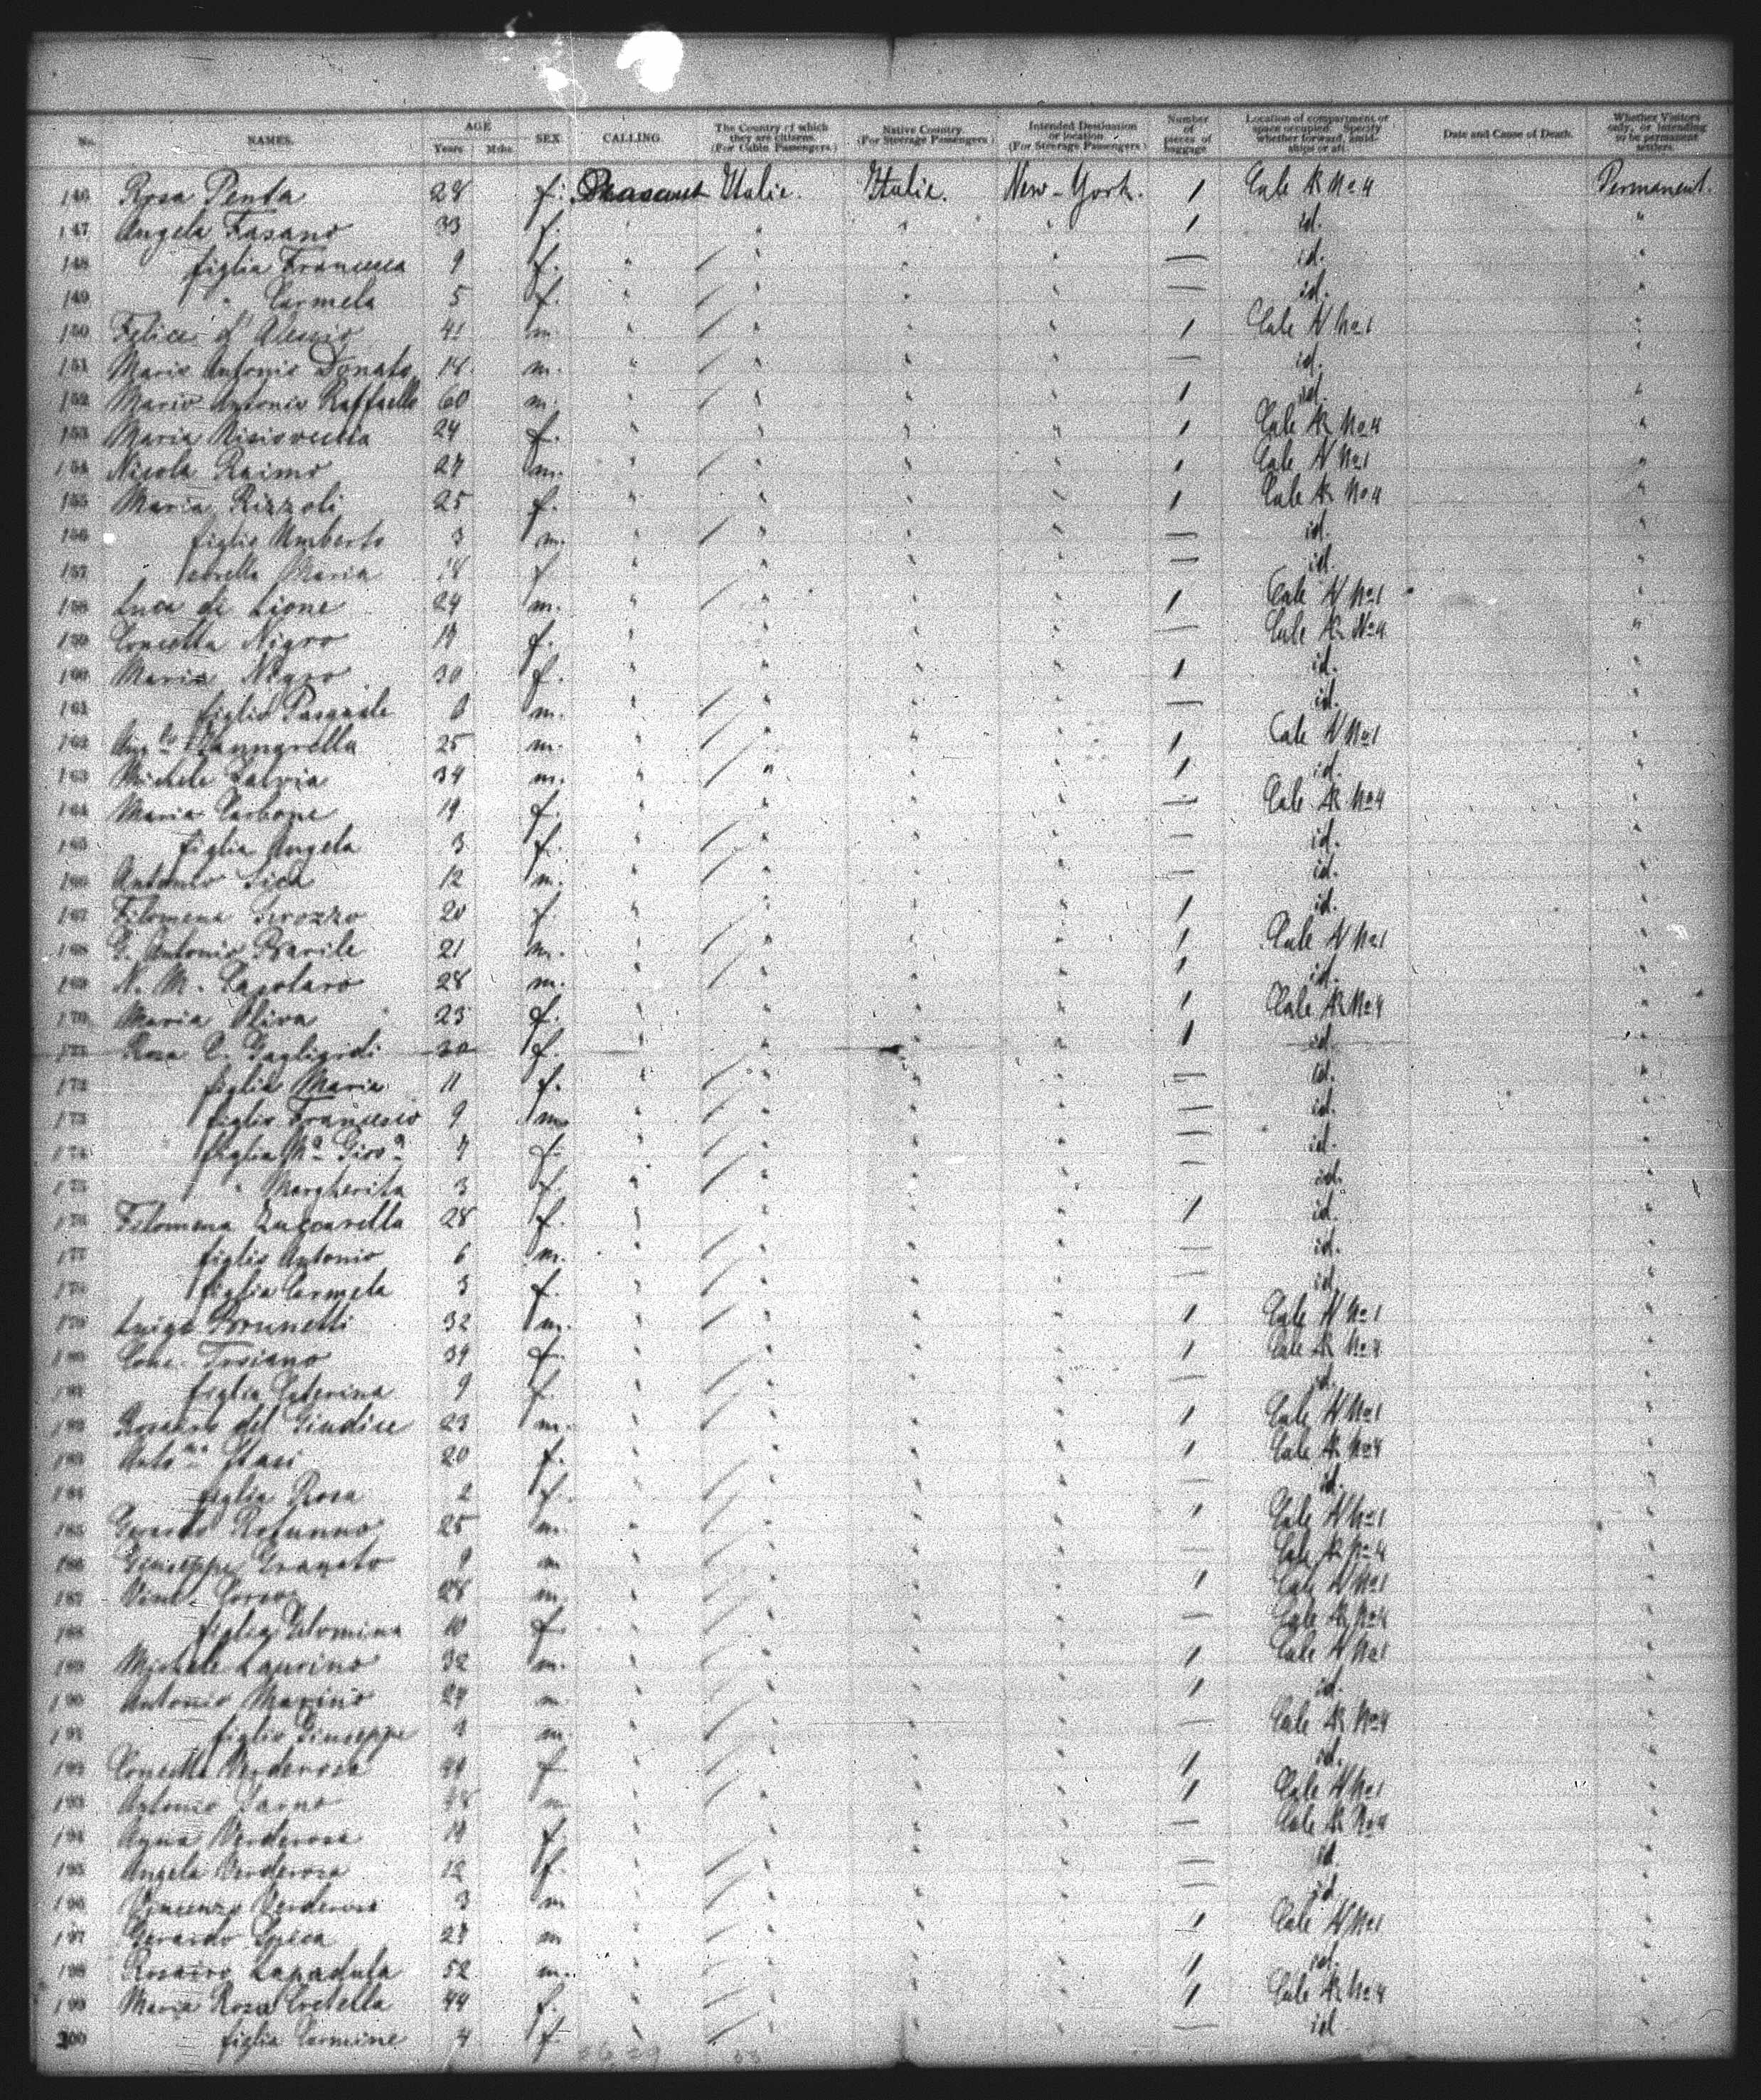 No. NAMES. AGE Years Mths. SEX. CALLING. The Country of which they are citizens. (For Cabin Passengers) Native Country. (For Steerage Passengers) Intended Destination or location. (For Steerage Passengers) Number of pieces of baggage Location of compartment or space occupied. Specify whether forward, amidships or aft. Date and Cause of Death. Whether Visitors only, or intending to be permanent settlers.
146 Rosa Penta 28 f. Italie. Italie. New-York. 1 Cale AR No 4 Permanent.
147 Angela Fasano 33 f. " " " " 1 id. "
148 figlia Francesca 9 f. " " " " — id. "
149 " Carmela 5 f. " " " " — id. "
150 Felice d' 41 m. " " " " 1 Cale AV No 1 "
151 Mario Antonio Donato 18 m. " " " " — id. "
152 Mario Antonio Raffaelle 60 m. " " " " 1 id. "
153 Maria 24 f. " " " " 1 Cale AR No 4 "
154 Nicola Raimo 27 m. " " " " 1 Cale AV No 1 "
155 Maria Rizzoli 25 f. " " " " 1 Cale AR No 4 "
156 figlio Umberto 3 m. " " " " — id. "
157 sorella Maria 18 f. " " " " — id. "
158 Luca di Lione 24 m. " " " " 1 Cale AV No 1 "
159 Concetta Nigro f. " " " " — Cale AR No 4 "
160 Maria Nigro 30 f. " " " " 1 id. "
161 figlio Pasquale m. " " " " — id. "
162 25 m. " " " " 1 Cale AV No 1 "
163 Michele Salvia 34 m. " " " " 1 id. "
164 Maria Carbone 19 f. " " " " — Cale AR No 4 "
165 figlia Angela 3 f. " " " " — id. "
166 Antonio Sica 12 m. " " " " — id. "
167 Filomena 20 f. " " " " 1 id. "
168 G. Antonio Barile 21 m. " " " " 1 Cale AV No 1 "
169 N. M. Capotaro 28 m. " " " " 1 id. "
170 Maria Oliva 23 f. " " " " 1 Cale AR No 4 "
171 Rosa C. 30 f. " " " " 1 id. "
172 figlia Maria 11 f. " " " " — id. "
173 figlio Francesco 9 m. " " " " — id. "
174 figlia Ma Giova f. " " " " — id. "
175 " Margherita 3 f. " " " " — id. "
176 Filomena Zuccarella 28 f. " " " " 1 id. "
177 figlio Antonio 6 m. " " " " — id. "
178 figlia Carmela 3 f. " " " " — id. "
179 Luigi Brunetti 32 m. " " " " 1 Cale AV No 1 "
180 Conc. Troiano 39 f. " " " " 1 Cale AR No 4 "
181 figlia Caterina 9 f. " " " " — id. "
182 Rosario del Giudice 23 m. " " " " 1 Cale AV No 1 "
183 Stasi 20 f. " " " " 1 Cale AR No 4 "
184 figlia Rosa 2 f. " " " " — id. "
185 Gerardo Rotunno 25 m. " " " " 1 Cale AV No 1 "
186 Giuseppe Granato 9 m " " " " — Cale AR No 4 "
187 28 m. " " " " 1 Cale AV No 1 "
188 figlia Filomina 10 f. " " " " — Cale AR No 4 "
189 Michele Laurino 32 m. " " " " 1 Cale AV No 1 "
190 Antonio Marino m. " " " " 1 id. "
191 figlio Giuseppe 3 m. " " " " — Cale AR No 4 "
192 Concetta Verderosa f " " " " 1 id. "
193 Antonio Sarno m " " " " 1 Cale AV No 1 "
194 Anna Verderosa f. " " " " — Cale AR No 4 "
195 Angela Verderosa 12 f. " " " " — id. "
196 Vincenzo Verderosa 3 m " " " " — id. "
197 Gerardo m " " " " 1 Cale AV No 1 "
198 Rosario Lapadula 52 m. " " " " 1 id. "
199 Maria Rosa 44 f. " " " " 1 Cale AR No 4 "
200 figlia Carmine 4 f. " " " " — id "